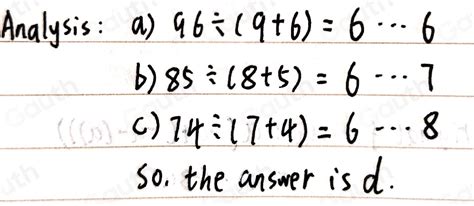 Analysis: a) 96÷(9+6)=6···6
b) 85÷(8+5)=6···7
c) 74÷(7+4)=6···8
So, the answer is d.